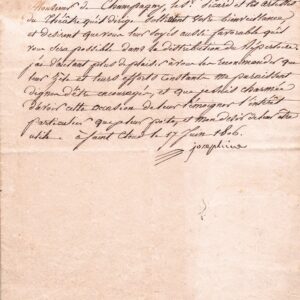 Monsieur de Champagny, le Sr. Picard et les artistes
du théâtre qu'il dirige sollicitent votre bienveillance
et desirent que vous leur soyés aussi favorable que
vous sera possible dans la distribution du répertoire
j'ai d'autant plus de plaisir à vous les recommander que
leur zèle et leurs efforts constans me paraissent
dignes d'être encouragés, et que je suis charmée
d'avoir cette occasion de leur témoigner l'intérêt
particulier que je leur porte, et mon desir de leur être
utile. à Saint Cloud le 17 Juin 1806.
Josephine